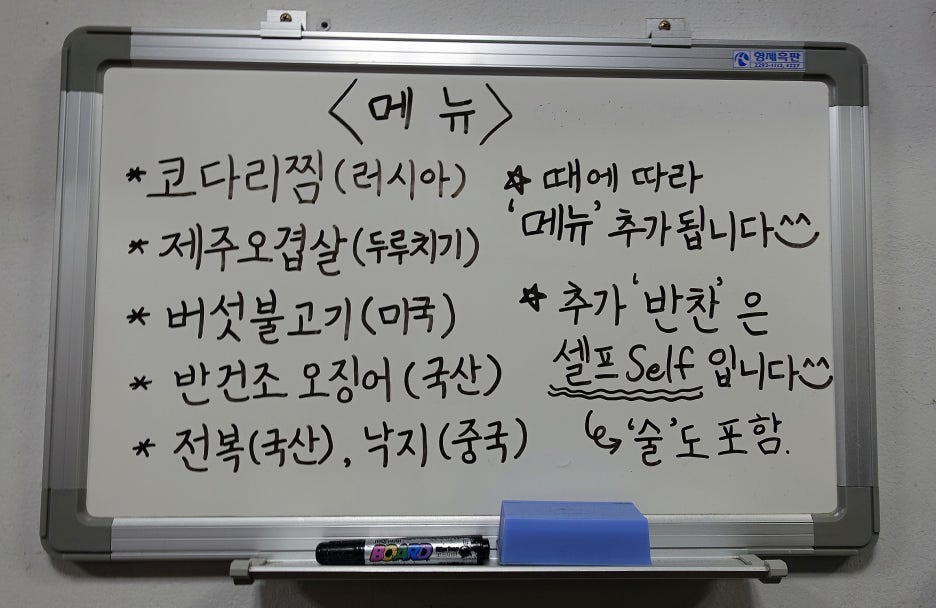 <메뉴>
* 코다리찜(러시아)
* 제주오겹살(두루치기)
* 버섯불고기(미국)
* 반건조 오징어(국산)
* 전복(국산), 낙지(중국)
☆ 때에 따라
'메뉴' 추가됩니다^^
☆ 추가 '반찬'은
셀프 Self 입니다^^
↳ '술'도 포함.
형제흑판
BOARD